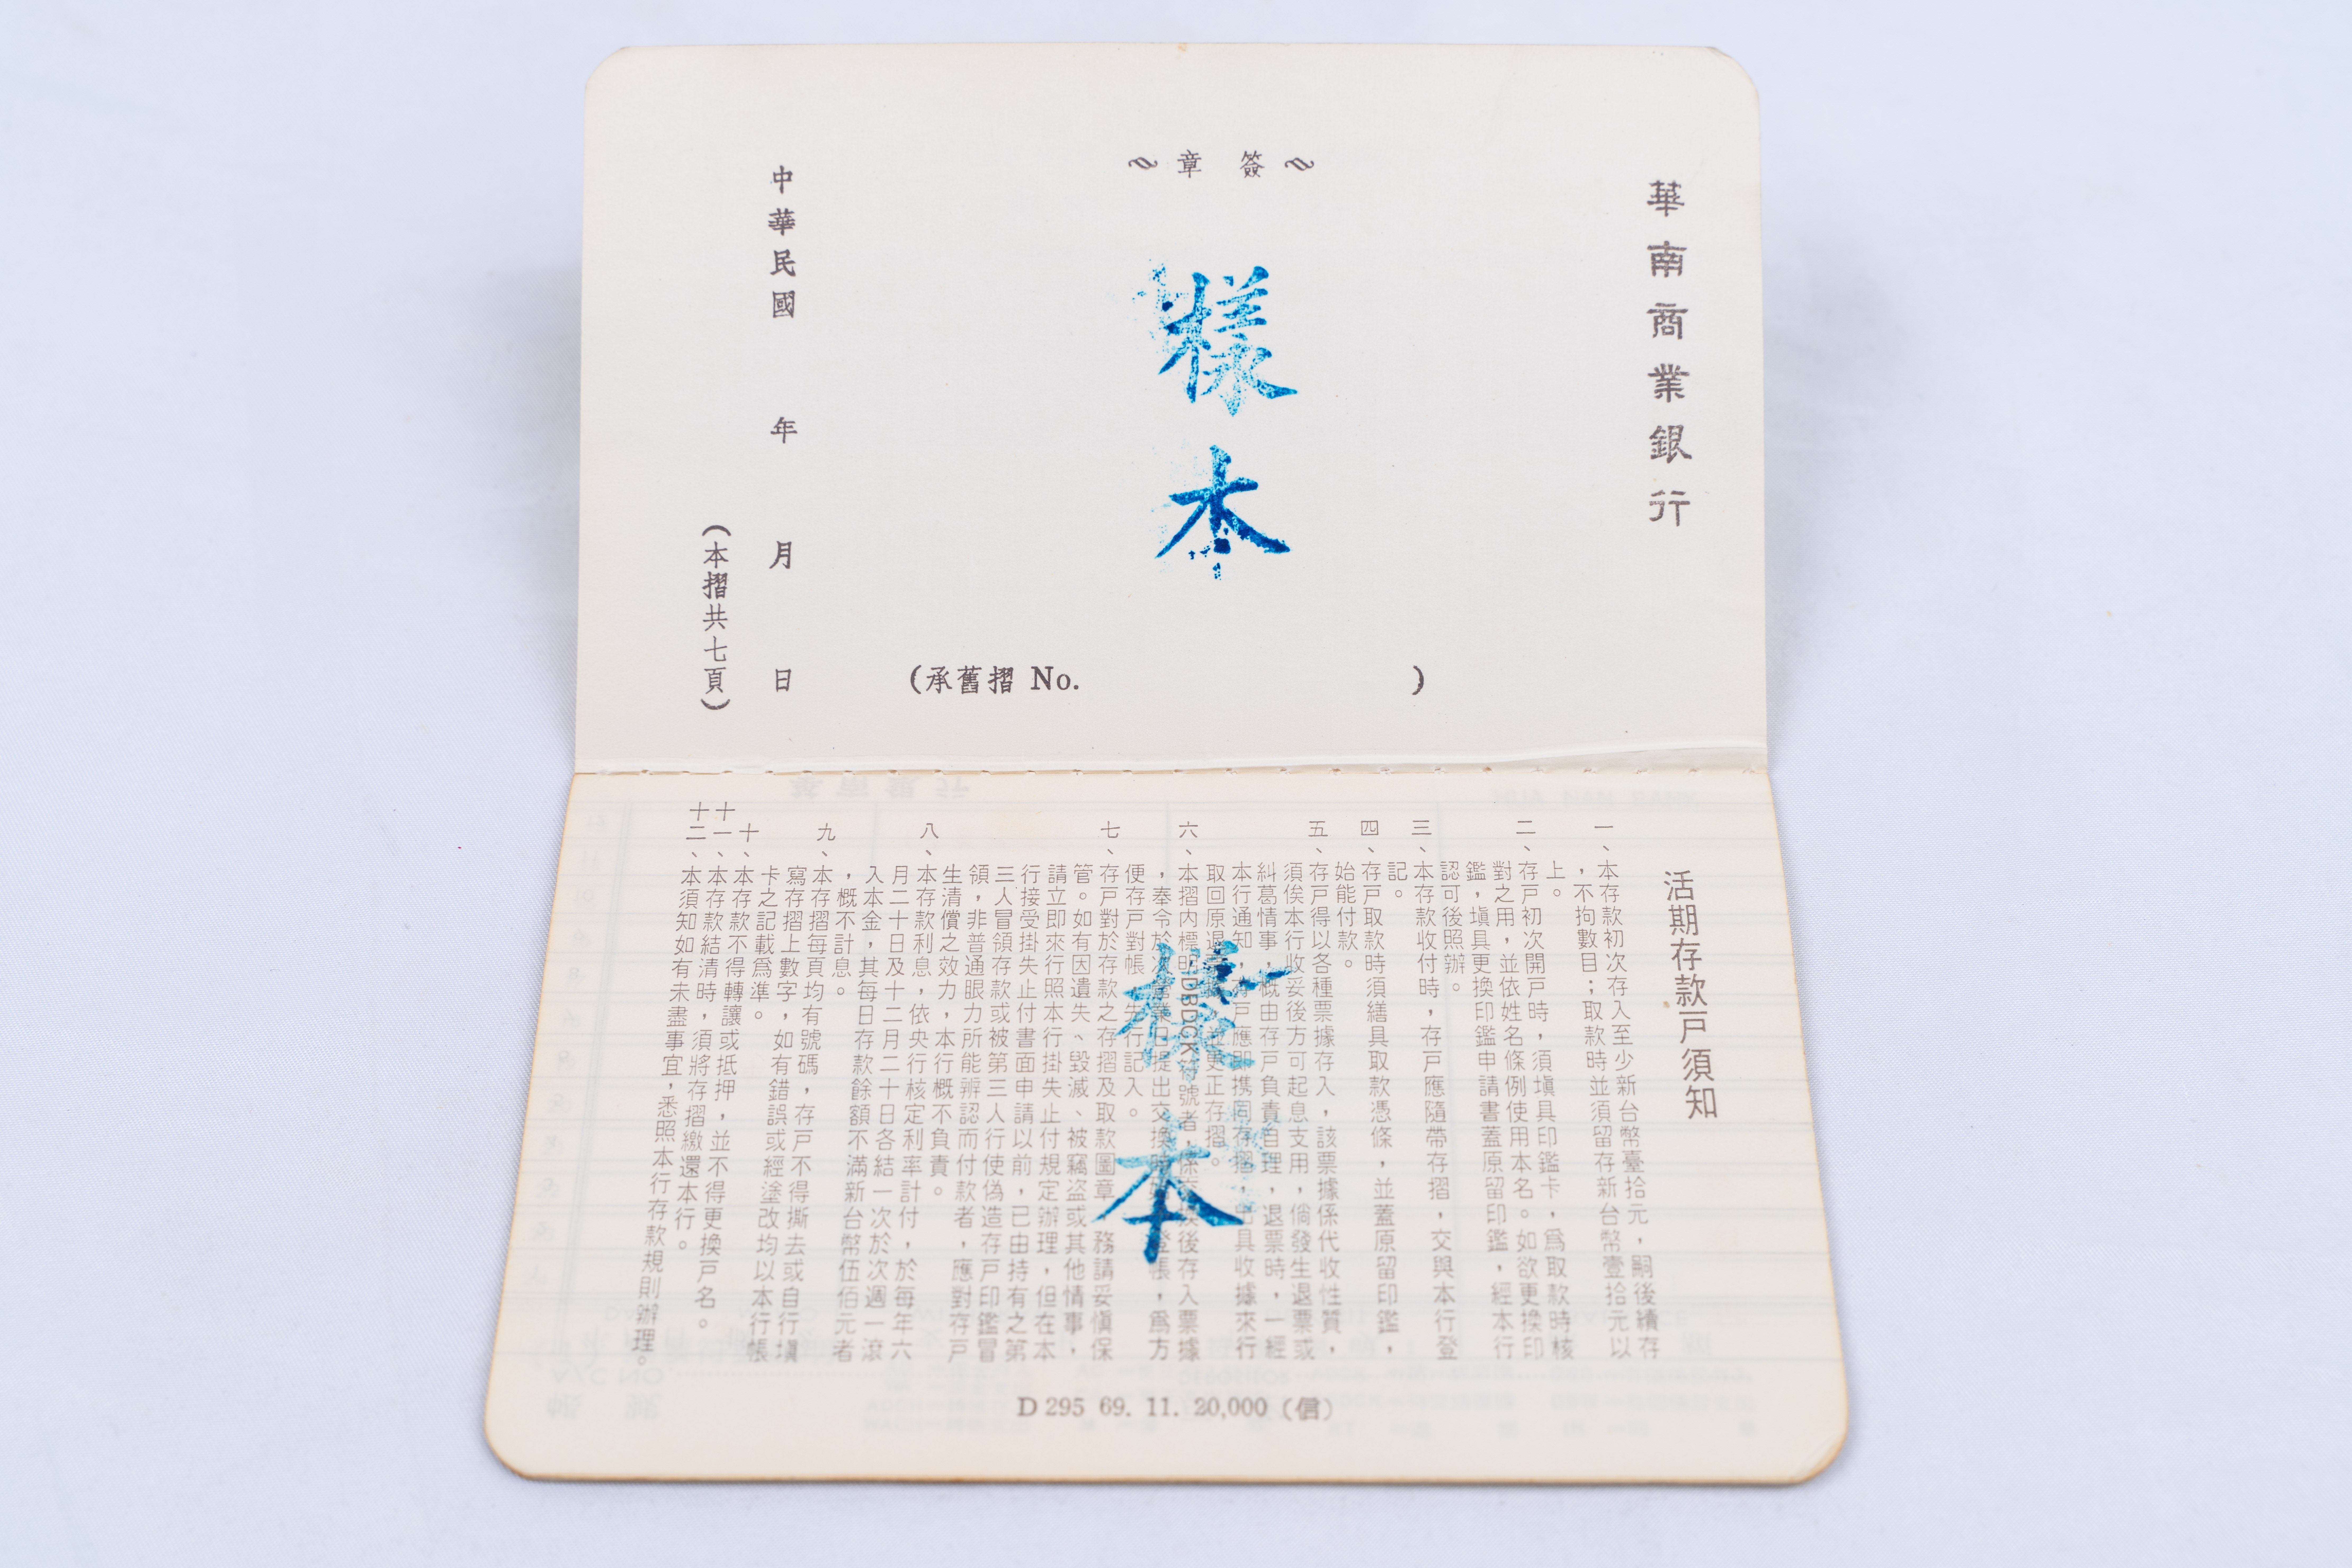 華南商業銀行
簽章
樣本
(承舊摺 No. )
中華民國 年 月 日
(本摺共七頁)
活期存款戸須知
一、本存款初次存入至少新台幣臺拾元，嗣後續存
，不拘數目；取款時並須留存新台幣壹拾元以
上。
二、存戸初次開戸時，須塡具印鑑卡，爲取款時核
對之用，並依姓名條例使用本名。如欲更換印
鑑，塡具更換印鑑申請書蓋原留印鑑，經本行
認可後照辦。
三、本存款收付時，存戸應隨帶存摺，交與本行登
記。
四、存戸取款時須繕具取款憑條，並蓋原留印鑑，
始能付款。
五、存戸得以各種票據存入，該票據係代收性質，
須俟本行收妥後方可起息支用，倘發生退票或
糾葛情事，概由存戸負責自理，退票時，一經
本行通知，存戸應即携同存摺，出具收據來行
取回原退票據，並更正存摺。
六、本摺内標明(DBDCK)符號者，係交換後存入票據
，奉令於次營業日提出交換時始登帳，爲方
便存戸對帳，先行記入。
七、存戸對於存款之存摺及取款圖章，務請妥愼保
管。如有因遺失、毀滅、被竊盜或其他情事，
請立即來行照本行掛失止付規定辦理，但在本
行接受掛失止付書面申請以前，已由持有之第
三人冒領存款或被第三人行使偽造存戸印鑑冒
領，非普通眼力所能辨認而付款者，應對存戸
生清償之效力，本行概不負責。
八、本存款利息，依央行核定利率計付，於每年六
月二十日及十二月二十日各結一次於次週一滾
入本金，其每日存款餘額不滿新台幣伍佰元者
，概不計息。
九、本存摺每頁均有號碼，存戸不得撕去或自行塡
寫存摺上數字，如有錯誤或經塗改均以本行帳
卡之記載爲準。
十、本存款不得轉讓或抵押，並不得更換戸名。
十一、本存款結清時，須將存摺繳還本行。
十二、本須知如有未盡事宜，悉照本行存款規則辦理。
樣本
D 295 69. 11. 20,000 (信)